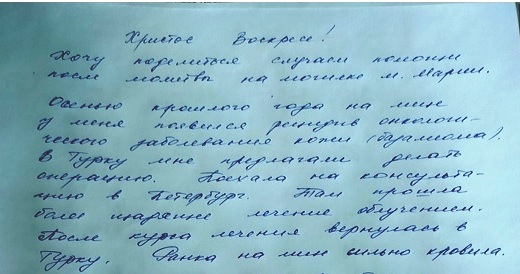 Христос Воскресе!
Хочу поделиться случаем помощи
после молитвы на могилке м. Марии.
Осенью прошлого года на мин
у меня появился рецидив онкологи-
ческого заболевания кожи (базалиома).
В Турку мне предлагали делать
операцию. Поехала на консульта-
цию в Петербург. Там прошла
более щадящее лечение облучением.
После курса лечения вернулась в
Турку. Ранка на мин сильно кровила.